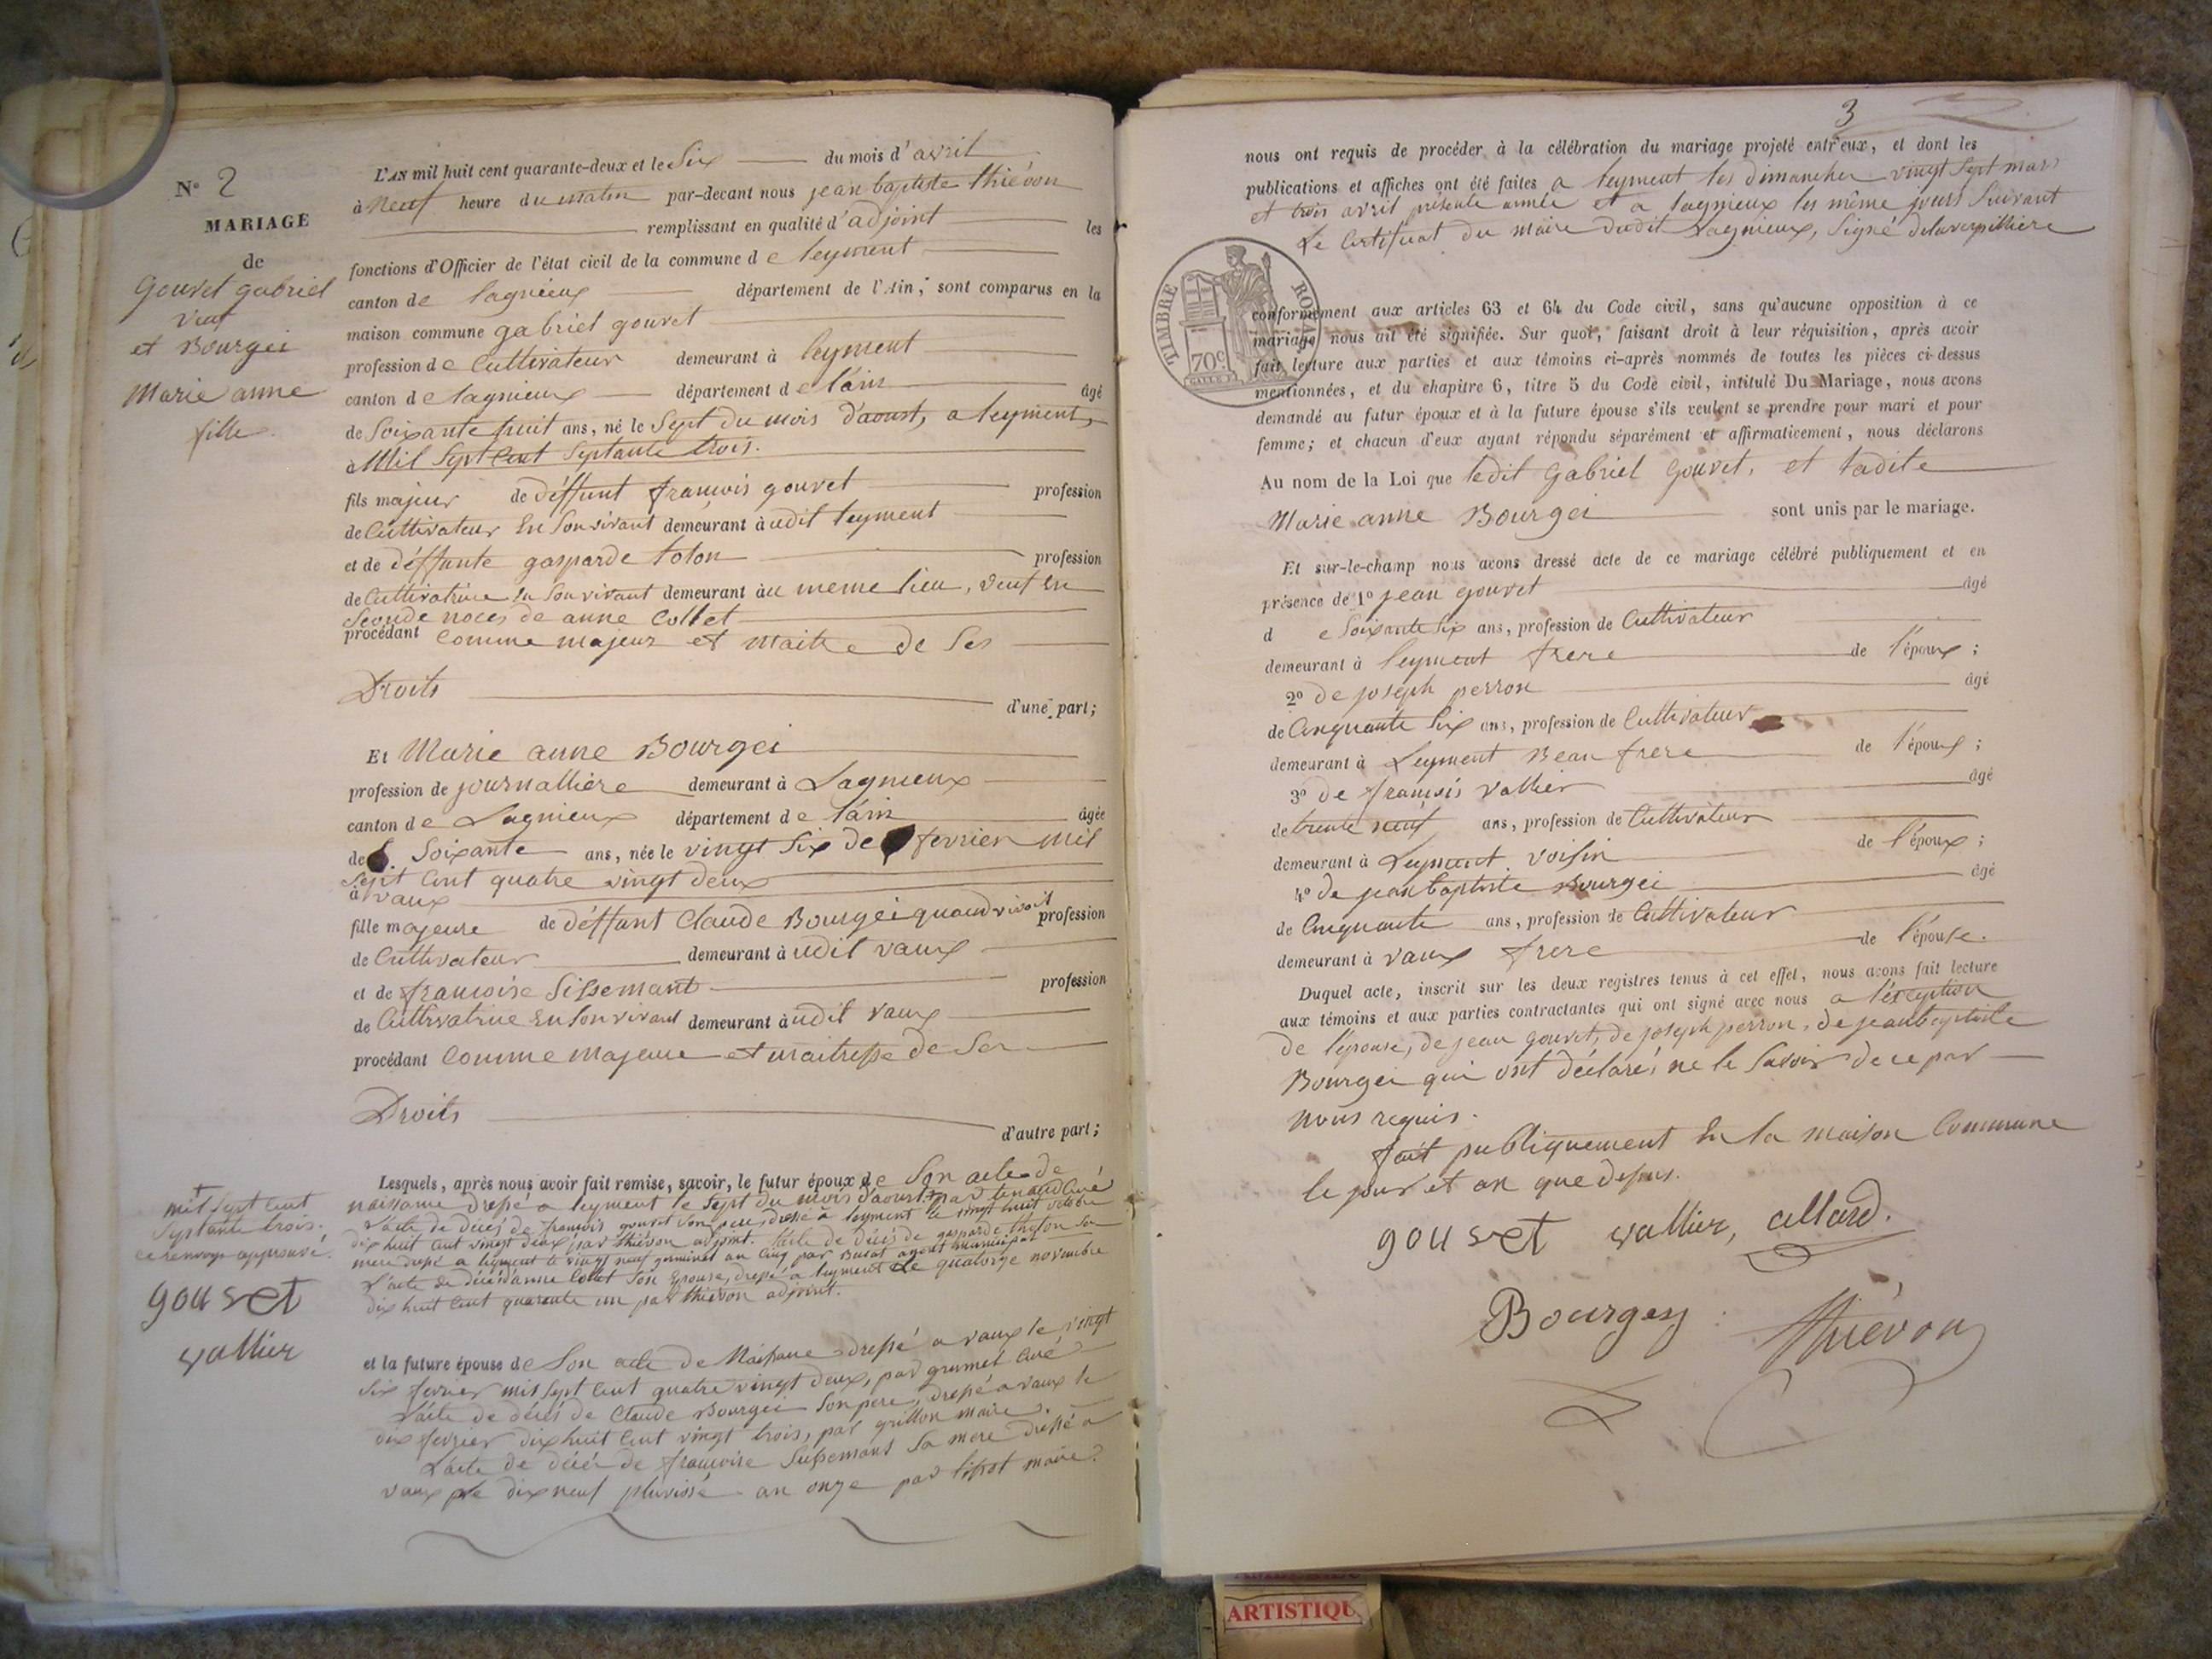 N° 2
MARIAGE
de
Gouvet gabriel
veuf
et Bourgei
Marie anne
fille.
L'AN mil huit cent quarante-deux et le Six du mois d'avril
à Neuf heure du matin par-devant nous jean baptiste thiévon
remplissant en qualité d'adjoint les
fonctions d'Officier de l'état civil de la commune de leyment
canton de lagnieux département de l'Ain, sont comparus en la
maison commune gabriel gouvet
profession de Cultivateur demeurant à leyment
canton de lagnieux département de l'ain âgé
de Soixante huit ans, né le Sept du mois d'aoust, a leyment,
à Mil Sept Cent Septante trois.
fils majeur de déffunt françois gouvet profession
de Cultivateur En Son vivant demeurant à udit leyment
et de déffunte gasparde toton profession
de Cultivatrice en Son vivant demeurant àu meme lieu, veuf En
Seconde noces de anne Collet
procédant Comme majeur et Maitre de Ses
Droits
d'une part;
Et Marie anne Bourgei
profession de journallière demeurant à Lagnieux
canton de Lagnieux département de l'ain âgée
de Soixante ans, née le vingt Six de fevrier Mil
Sept Cent quatre vingt deux
à vaux
fille majeure de déffunt Claude Bourgei quand vivoit profession
de Cultivateur demeurant à udit vaux
et de françoise Sissemant profession
de Cultivatrice En Son vivant demeurant à udit vaux
procédant Comme Majeure et maitresse de Ses
Droits
d'autre part;
Lesquels, après nous avoir fait remise, savoir, le futur époux de Son acte de
naissance dressé a leyment le Sept du mois d'aoust + par Curé
L'acte de décés de françois gouvet Son pere, dressé à leyment le vingt huit octobre
dix huit Cent vingt deux par thiévon adjoint. l'acte de décés de gasparde thoton Sa
mere dressé a leyment le vingt neuf germinal an Cinq par agent municipal
L'acte de décés d'anne Collet Son Epouse, dressé a leyment Le quatorze novembre
dix huit Cent quarante un par thiévon adjoint.
+
mil Sept Cent
Septante trois.
ce renvoy approuvé.
gouvet
vallier
et la future épouse de Son acte de Naissance dressé a vaux le vingt
Six fevrier mil Sept Cent quatre vingt deux, par grumet Curé
L'acte de décés de Claude Bourgei Son pere, dressé a vaux le
dix fevrier dix huit Cent vingt trois, par grillon maire.
L'acte de décés de françoise Sissemant Sa mere dressé a
vaux le dix neuf pluviose an onze par maire.
3
nous ont requis de procéder à la célébration du mariage projeté entr'eux, et dont les
publications et affiches ont été faites a leyment les dimanches vingt Sept mars
et trois avril présente année et a lagnieux les même jours Suivant
Le Certificat du maire dudit Lagnieux, Signé delaverpilliere
TIMBRE ROYAL
70c
conformément aux articles 63 et 64 du Code civil, sans qu'aucune opposition à ce
mariage nous ait été signifiée. Sur quoi, faisant droit à leur réquisition, après avoir
fait lecture aux parties et aux témoins ci-après nommés de toutes les pièces ci-dessus
mentionnées, et du chapitre 6, titre 5 du Code civil, intitulé Du Mariage, nous avons
demandé au futur époux et à la future épouse s'ils veulent se prendre pour mari et pour
femme; et chacun d'eux ayant répondu séparément et affirmativement, nous déclarons
Au nom de la Loi que ledit Gabriel gouvet, et ladite
Marie anne Bourgei sont unis par le mariage.
Et sur-le-champ nous avons dressé acte de ce mariage célébré publiquement et en
présence de 1° jean gouvet âgé
d e Soixante Six ans, profession de Cultivateur
demeurant à leyment frere de l'époux;
2° de joseph perron âgé
de Cinquante Six ans, profession de Cultivateur
demeurant à Leyment Beau frere de l'époux;
3° de françois vallier âgé
de trente neuf ans, profession de Cultivateur
demeurant à Leyment voisin de l'époux;
4° de jean baptiste Bourgei âgé
de Cinquante ans, profession de Cultivateur
demeurant à vaux frere de l'épouse.
Duquel acte, inscrit sur les deux registres tenus à cet effet, nous avons fait lecture
aux témoins et aux parties contractantes qui ont signé avec nous a l'exception
de l'épouse, de jean gouvet, de joseph perron, de jean baptiste
Bourgei qui ont déclaré ne le Savoir de ce par
Nous requis.
fait publiquement En la maison Commune
le jour et an que dessus.
gouvet vallier, allard.
Bourgey thiévon
ARTISTIQU